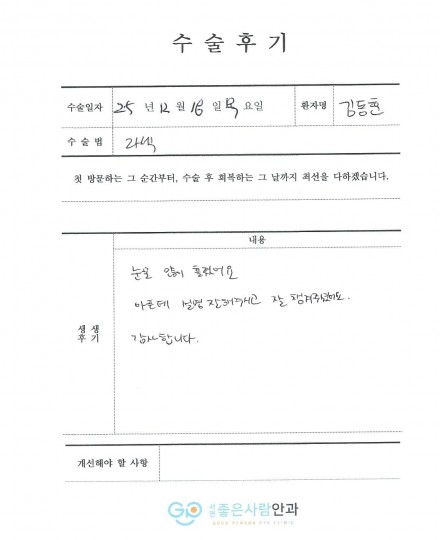 수 술 후 기
수술일자 25 년 12 월 18 일 목 요일 환자명 김동현
수 술 범 라식
첫 방문하는 그 순간부터, 수술 후 회복하는 그 날까지 최선을 다하겠습니다.
내용
생생
후기
눈물 많이 흘렸어요
아픈데 설명 잘해주시고 잘 챙겨주셨어요.
감사합니다.
개선해야 할 사항
서울 좋은사람안과
GOOD PERSON EYE CLINIC